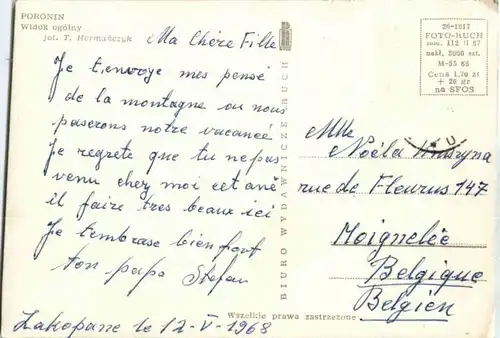 PORONIN
Widok ogólny
fot. T. Hermańczyk
26-1617
FOTO-RUCH
zam. 112 II 67
nakł. 3000 szt.
M-55 66
Cena 1,70 zł
+ 20 gr
na SFOS
Ma Chère Fille
Je t,envoye mes pensé
de la montagne ou nous
paserons notre vacancé
Je regrete que tu ne pus
venu chez moi cet ané
il faire tres beaux ici
Je t'embrase bien fort
ton papa Stefan
Zakopane le 12-V-1968
BIURO WYDAWNICZE RUCH
Mlle
Noéla
rue de Fleurus 147
Moignelée
Belgique
Belgien
Wszelkie prawa zastrzeżone